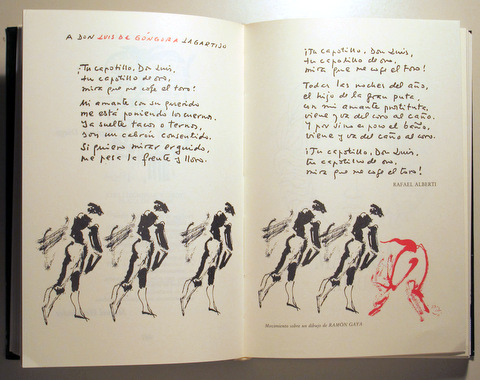 A DON LUIS DE GÓNGORA LAGARTIJO
¡Tu capotillo, Don Luis,
tu capotillo de oro,
mira que me coge el toro!
Mi amante con su querido
me está poniendo los cuernos.
Ya suelte tacos o ternos,
soy un cabrón consentido.
Si quiero mirar erguido,
me pesa la frente y lloro.
¡Tu capotillo, Don Luis,
tu capotillo de oro,
mira que me coge el toro!
Todas las noches del año,
el hijo de la gran puta,
con mi amante prostituta,
viene y va del coro al caño.
Y por si no es poco el baño,
viene y va del caño al coro.
¡Tu capotillo, Don Luis,
tu capotillo de oro,
mira que me coge el toro!
RAFAEL ALBERTI
Movimientos sobre un dibujo de RAMÓN GAYA